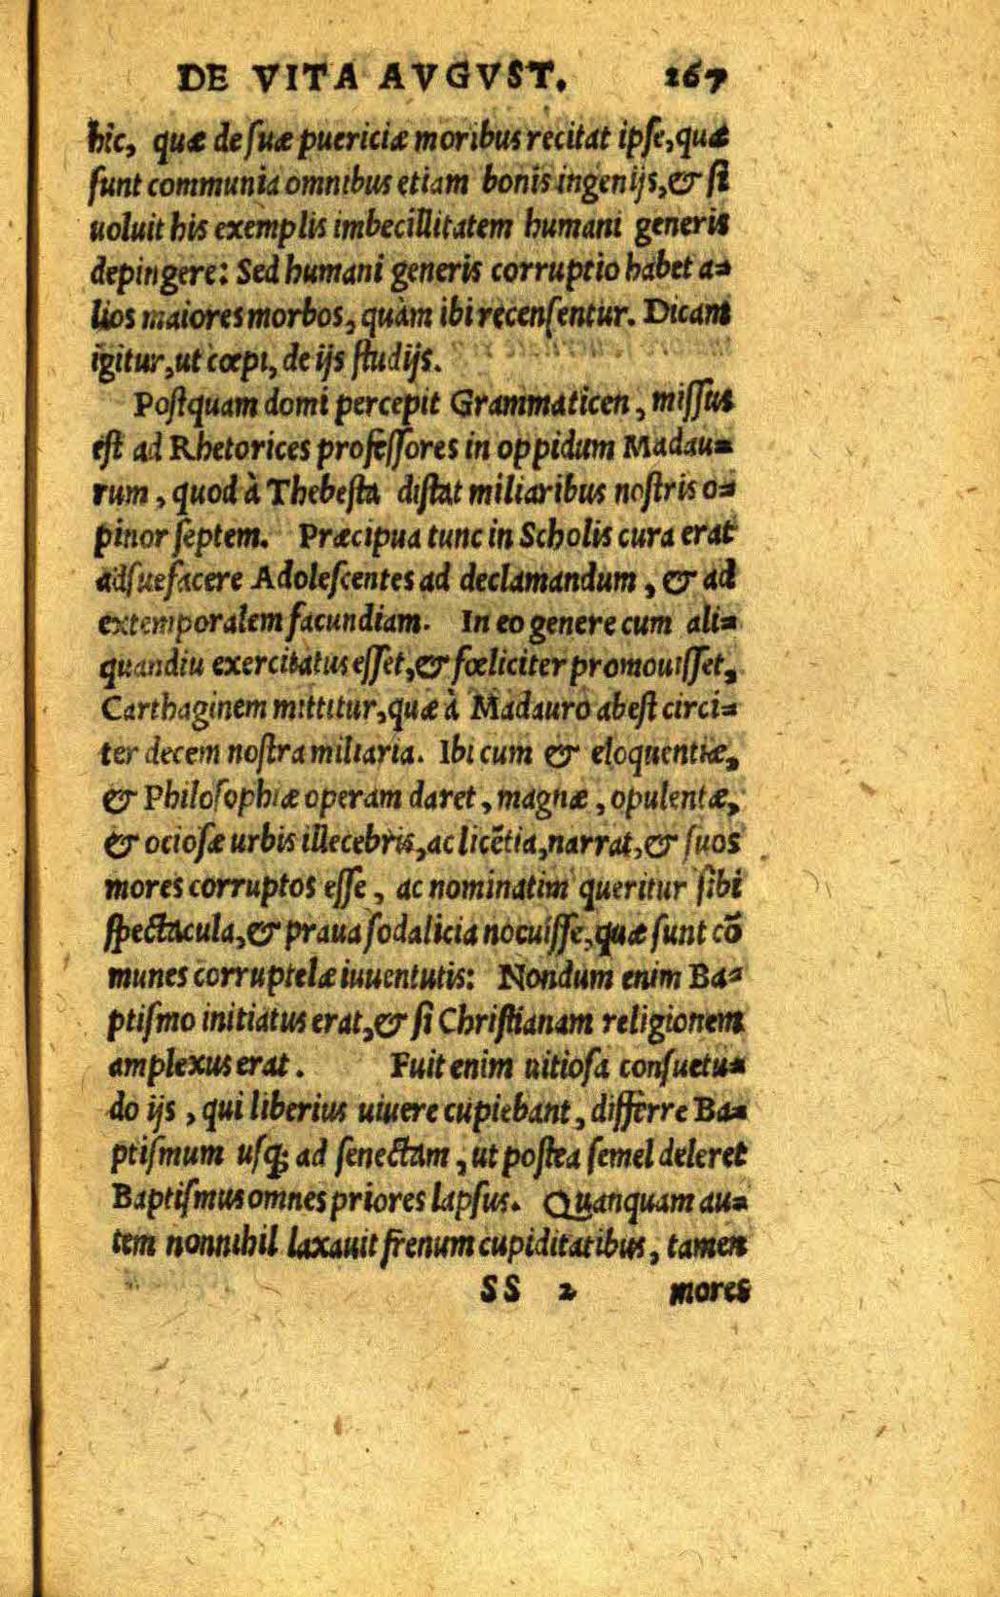 DE VITA AVGVST. 267
hîc, quæ de suæ puericiæ moribus recitat ipse, quæ
sunt communia omnibus etiam bonis ingenijs, & si
uoluit his exemplis imbecillitatem humani generis
depingere: Sed humani generis corruptio habet a=
lios maiores morbos, quàm ibi recensentur. Dicam
igitur, ut cœpi, de ijs studijs.
Postquam domi percepit Grammaticen, missus
est ad Rhetorices professores in oppidum Madau=
rum, quod à Thebesta distat miliaribus nostris o=
pinor septem. Præcipua tunc in Scholis cura erat
adsuefacere Adolescentes ad declamandum, & ad
extemporalem facundiam. In eo genere cum ali=
quandiu exercitatus esset, & fœliciter promouisset,
Carthaginem mittitur, quæ à Madauro abest circi=
ter decem nostra miliaria. Ibi cum & eloquentiæ,
& Philosophiæ operam daret, magnæ, opulentæ,
& ociosæ urbis illecebris, ac licẽtia, narrat, & suos
mores corruptos esse, ac nominatim queritur sibi
spectacula, & praua sodalicia nocuisse, quæ sunt cõ
munes corruptelæ iuuentutis: Nondum enim Ba=
ptismo initiatus erat, & si Christianam religionem
amplexus erat. Fuit enim uitiosa consuetu=
do ijs, qui liberius uiuere cupiebant, differre Ba=
ptismum usq; ad senectam, ut postea semel deleret
Baptismus omnes priores lapsus. Quanquam au=
tem nonnihil laxauit frenum cupiditatibus, tamen
SS 2 mores